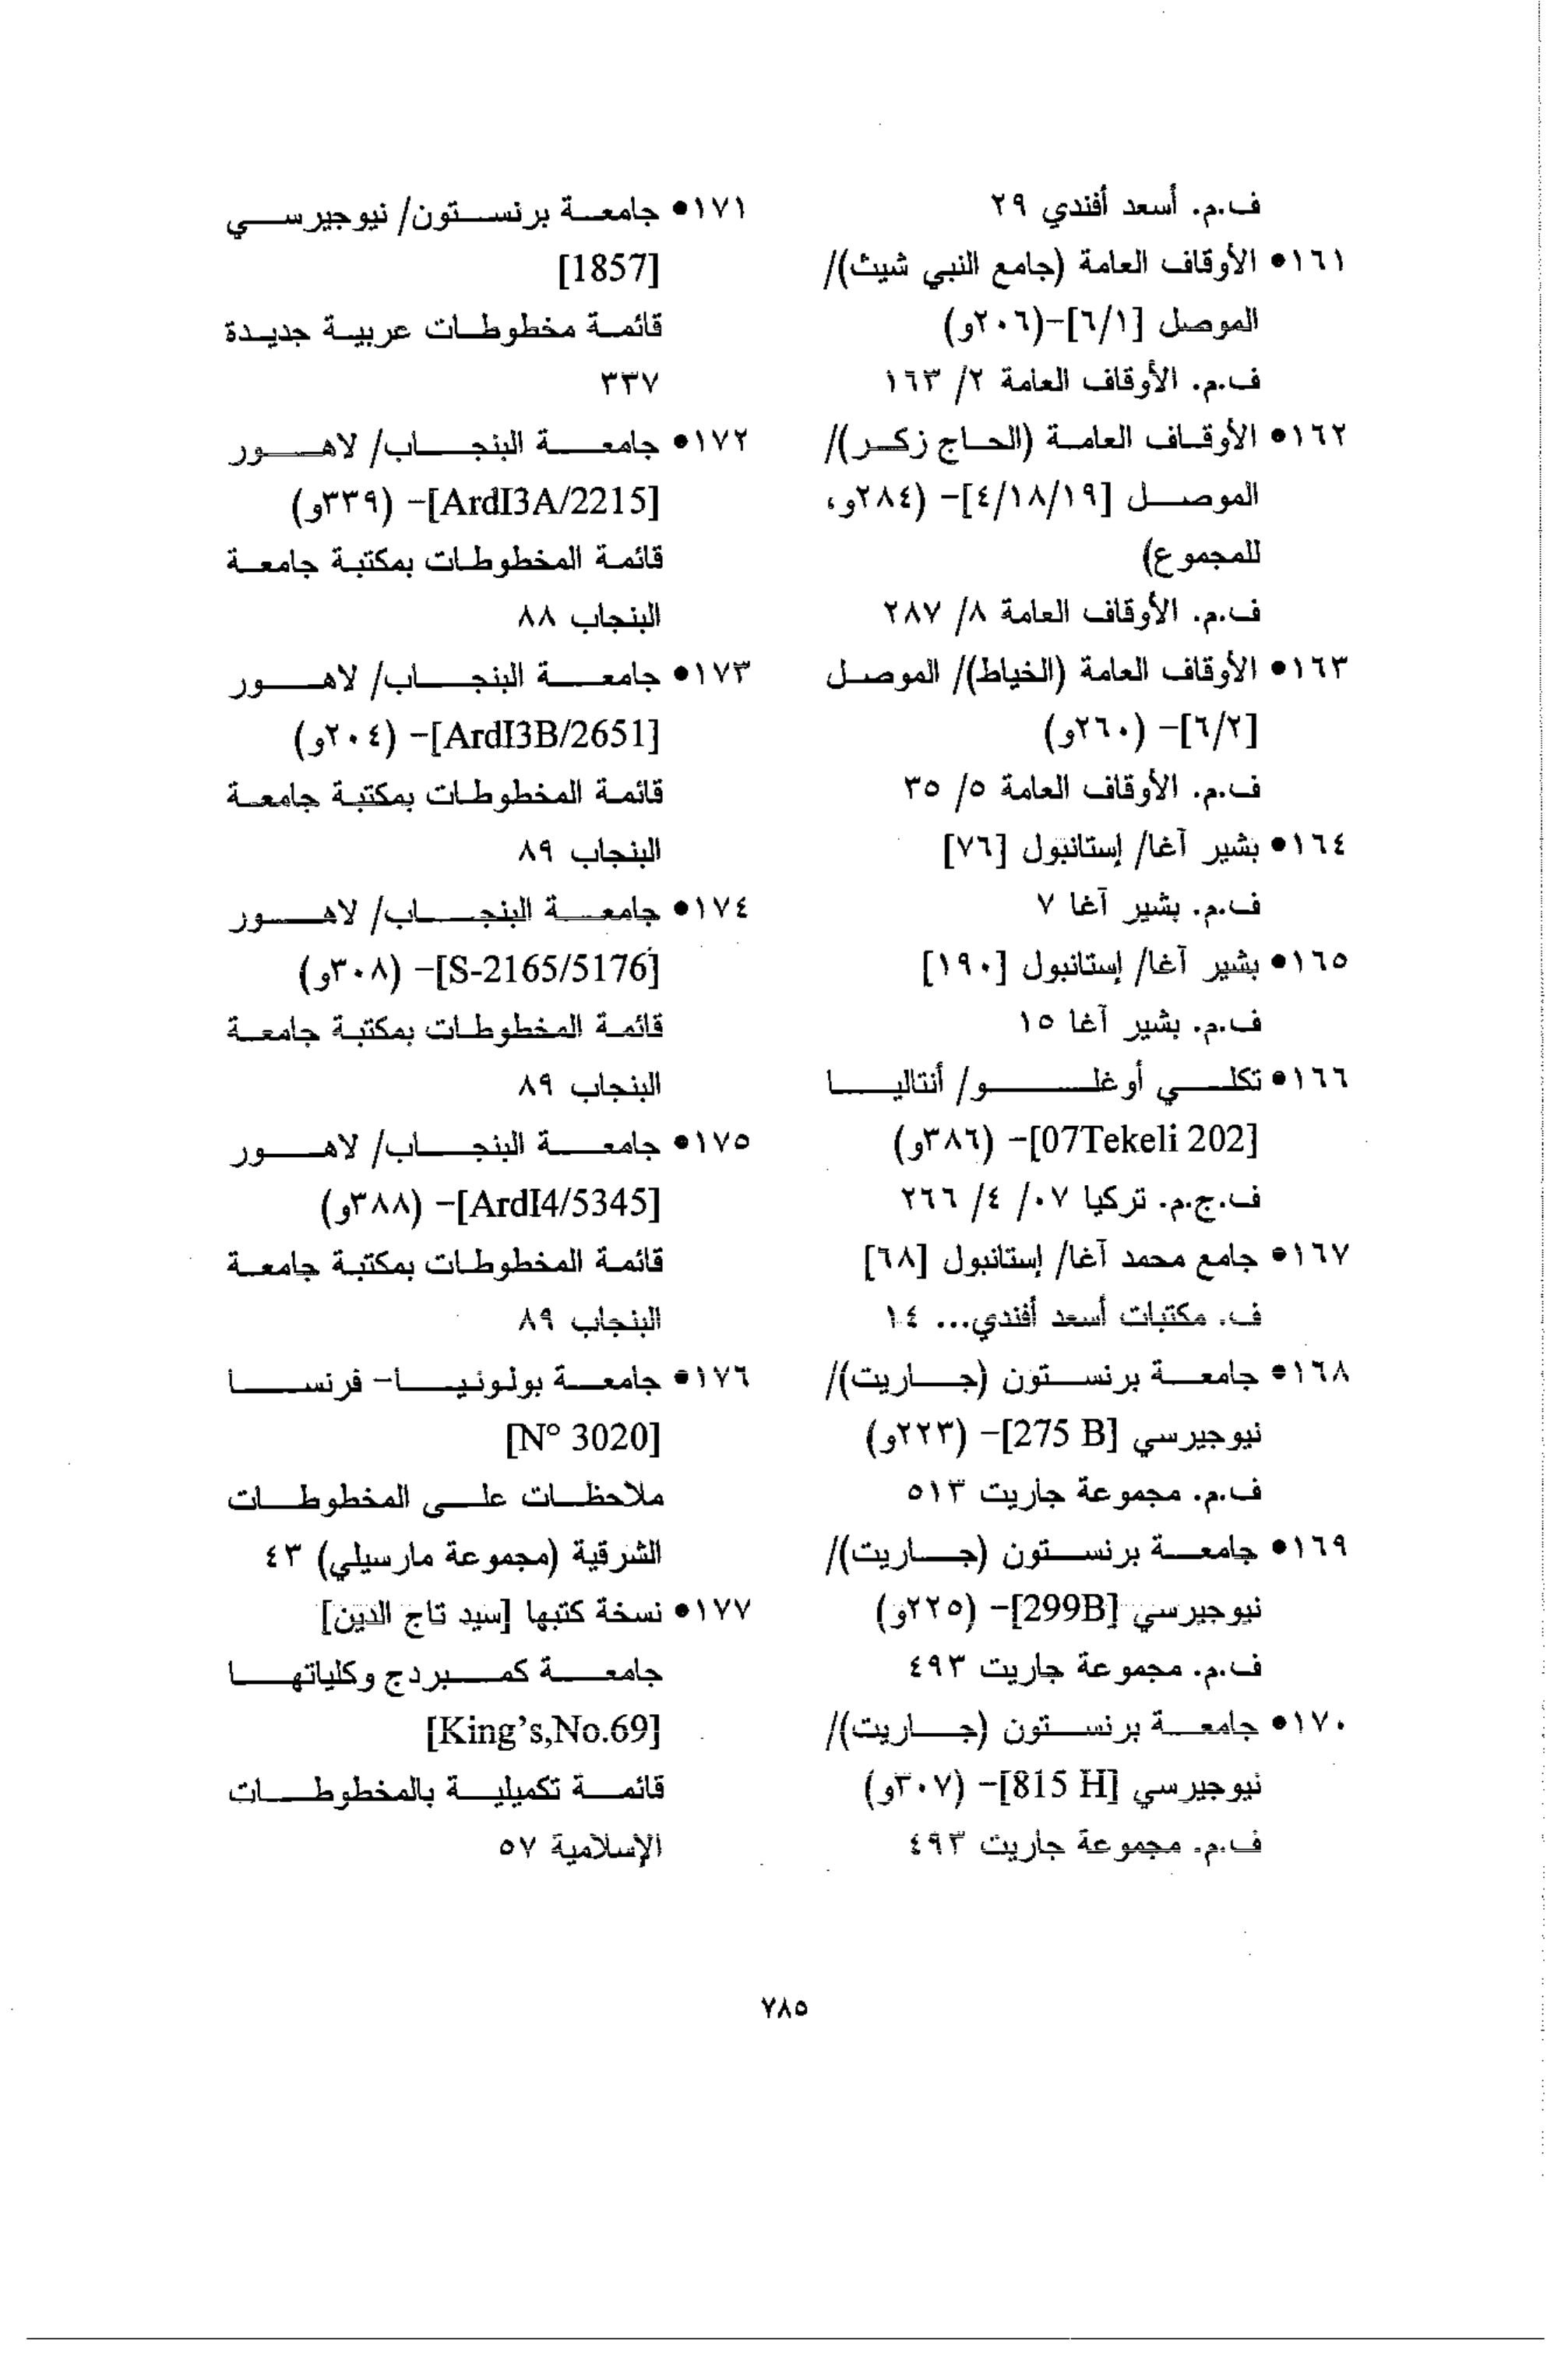 ف.م. أسعد أفندي ٢٩
١٦١• الأوقاف العامة (جامع النبي شيث)/
الموصل [٦/١]-(٢٠٦و)
ف.م. الأوقاف العامة ٢/ ١٦٣
١٦٢• الأوقاف العامة (الحاج زكر)/
الموصل [٤/١٨/١٩]- (٢٨٤و،
للمجموع)
ف.م. الأوقاف العامة ٨/ ٢٨٧
١٦٣• الأوقاف العامة (الخياط)/ الموصل
[٦/٢]- (٢٦٠و)
ف.م. الأوقاف العامة ٥/ ٣٥
١٦٤• بشير آغا/ إستانبول [٧٦]
ف.م. بشير آغا ٧
١٦٥• بشير آغا/ إستانبول [١٩٠]
ف.م. بشير آغا ١٥
١٦٦• تكلي أوغلو/ أنتاليا
[07Tekeli 202]- (٣٨٦و)
ف.ج.م. تركيا ٠٧/ ٤/ ٢٦٦
١٦٧• جامع محمد آغا/ إستانبول [٦٨]
ف. مكتبات أسعد أفندي... ١٤
١٦٨• جامعة برنستون (جاريت)/
نيوجيرسي [275 B]- (٢٢٣و)
ف.م. مجموعة جاريت ٥١٣
١٦٩• جامعة برنستون (جاريت)/
نيوجيرسي [299B]- (٢٢٥و)
ف.م. مجموعة جاريت ٤٩٣
١٧٠• جامعة برنستون (جاريت)/
نيوجيرسي [815 H]- (٣٠٧و)
ف.م. مجموعة جاريت ٤٩٣
١٧١• جامعة برنستون/ نيوجيرسي
[1857]
قائمة مخطوطات عربية جديدة
٣٣٧
١٧٢• جامعة البنجاب/ لاهور
[ArdI3A/2215]- (٣٣٩و)
قائمة المخطوطات بمكتبة جامعة
البنجاب ٨٨
١٧٣• جامعة البنجاب/ لاهور
[ArdI3B/2651]- (٢٠٤و)
قائمة المخطوطات بمكتبة جامعة
البنجاب ٨٩
١٧٤• جامعة البنجاب/ لاهور
[S-2165/5176]- (٣٠٨و)
قائمة المخطوطات بمكتبة جامعة
البنجاب ٨٩
١٧٥• جامعة البنجاب/ لاهور
[ArdI4/5345]- (٣٨٨و)
قائمة المخطوطات بمكتبة جامعة
البنجاب ٨٩
١٧٦• جامعة بولونيا- فرنسا
[N° 3020]
ملاحظات على المخطوطات
الشرقية (مجموعة مارسيلي) ٤٣
١٧٧• نسخة كتبها [سيد تاج الدين]
جامعة كمبردج وكلياتها
[King’s,No.69]
قائمة تكميلية بالمخطوطات
الإسلامية ٥٧
٧٨٥